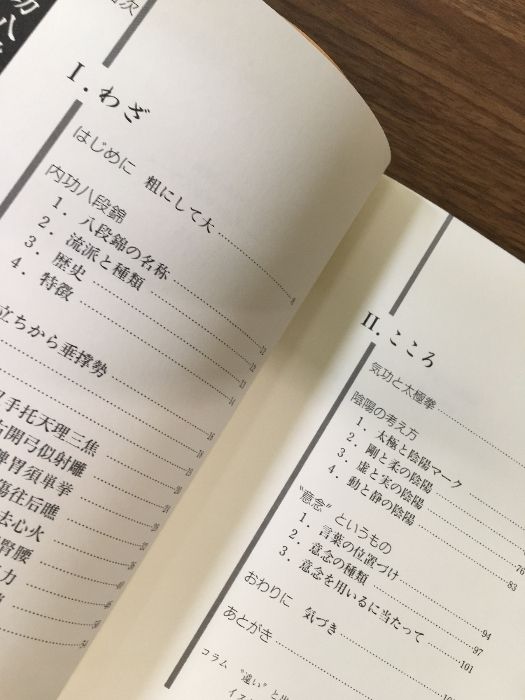 功八
次
I. わざ
はじめに 粗にして大
内功八段錦
1. 八段錦の名称
2. 流派と種類
3. 歴史
4. 特徴
立ちから垂撑勢
手托天理三焦
右開弓似射雕
脾胃須単挙
傷往后瞧
去心火
腎腰
力
II. こころ
気功と太極拳
陰陽の考え方
1. 太極と陰陽マーク
2. 剛と柔の陰陽
3. 虚と実の陰陽 76
4. 動と静の陰陽 83
"意念"というもの
1. 言葉の位置づけ 94
2. 意念の種類 97
3. 意念を用いるに当たって 101
おわりに 気づき
あとがき
コラム "違い"と